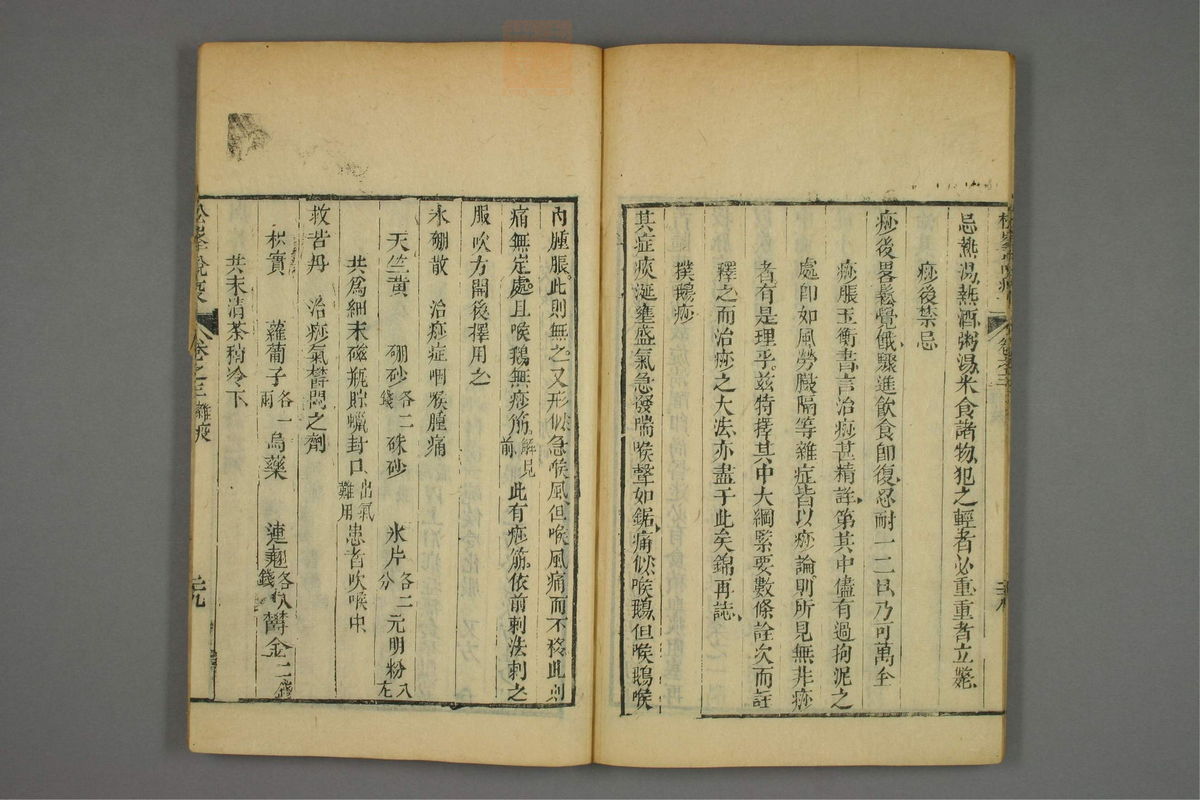 忌熱湯熱酒粥湯米食諸物犯之輕者必重重者立斃
痧後禁忌
痧後畧鬆覺餓驟進飲食卽復忍耐一二日乃可萬全
痧脹玉衡書言治痧甚精詳第其中儘有過拘泥之
處卽如風勞臌隔等雜症皆以痧論則所見無非痧
者有是理乎兹特擇其中大綱緊要數條詮次而註
釋之而治痧之大法亦盡于此矣錦再誌
撲鵝痧
其症痰涎壅盛氣急發喘喉聲如鋸痛似喉鵝但喉鵝喉
內腫脹此則無之又形似急喉風但喉風痛而不移此則
痛無定處且喉鵝無痧筋解見前此有痧筋依前刺法刺之
服吹方開後擇用之
氷硼散 治痧症咽喉腫痛
天竺黃 硼砂各二錢 硃砂 氷片各二分 元明粉八厷
共爲細末磁瓶貯蠟封口出氣難用患者吹喉中
救苦丹 治痧氣鬱悶之劑
枳實 蘿蔔子各一兩 烏藥 連翹各八錢 鬱金二錢
共末清茶稍冷下
松峯說疫 卷之三 雜疫 二十九